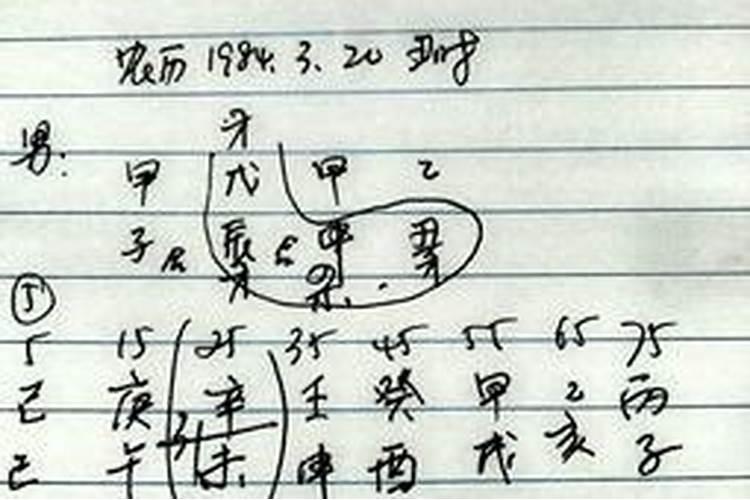 农历 1984.3.20 丑时
才
男: 甲 戊 甲 乙
子 辰 申 丑
才 杀 才
⑤
5 15 25 35 45 55 65 75
己 庚 辛 壬 癸 甲 乙 丙
巳 午 未 申 酉 戌 亥 子